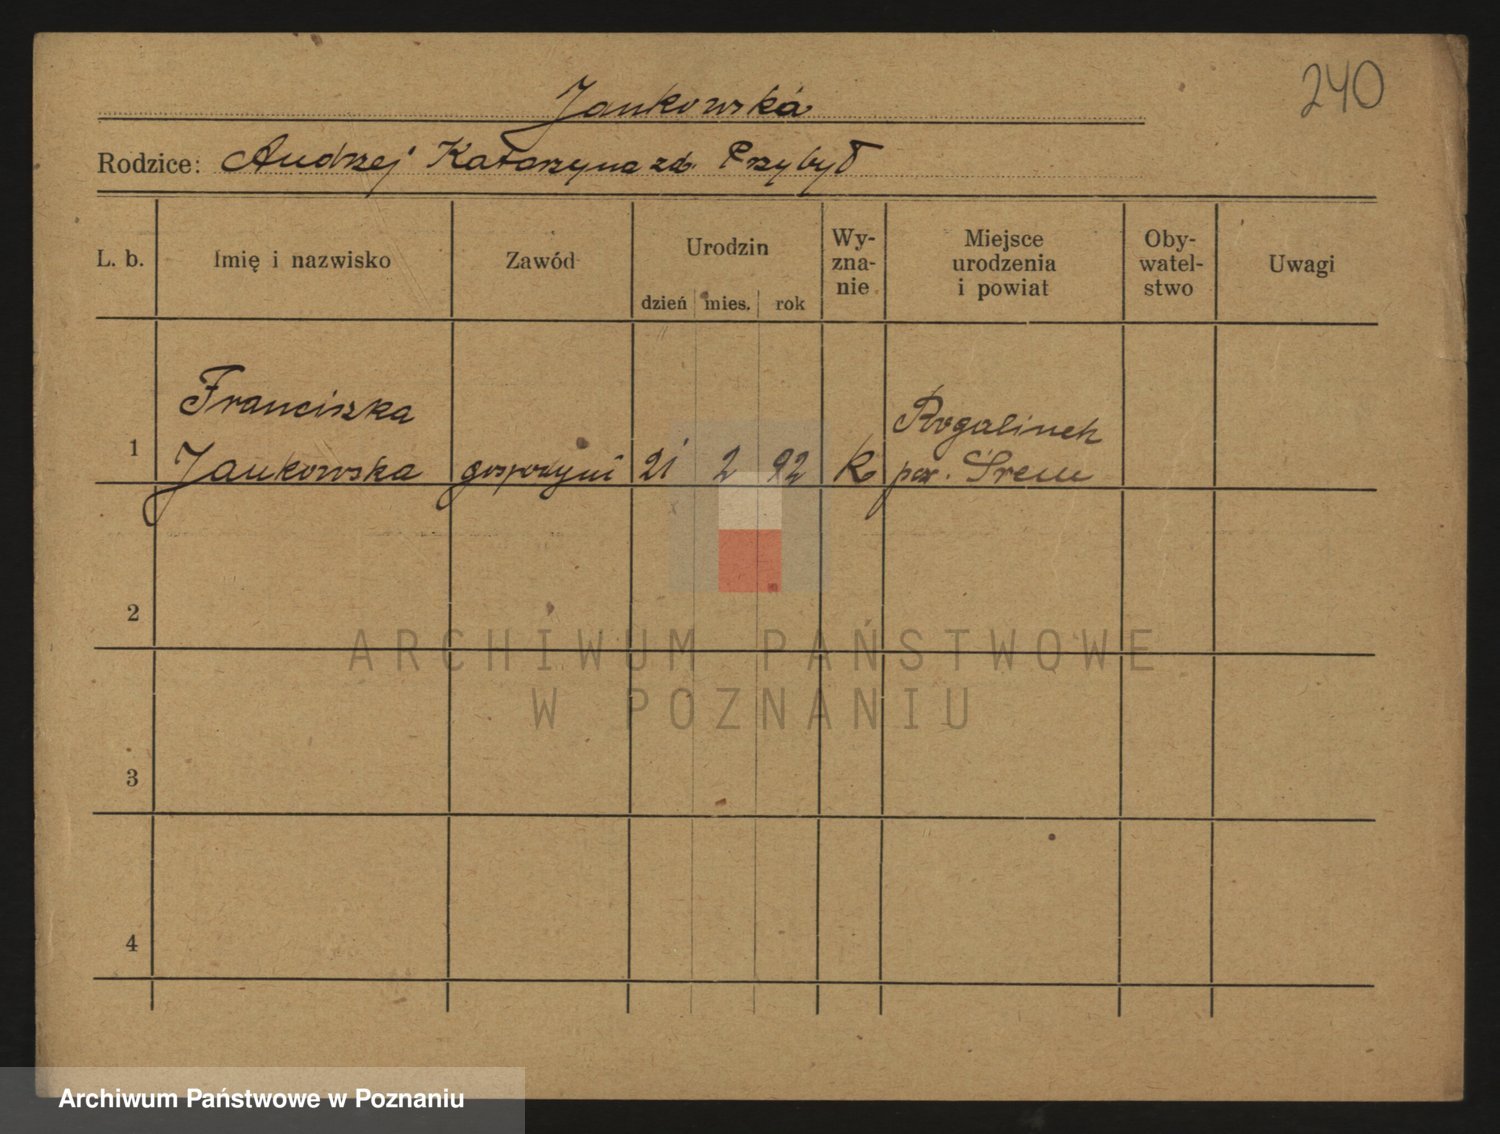 240
Jankowska
Rodzice: Andrzej Katarzyna zd. Przybył
L. b.
Imię i nazwisko
Zawód
Urodzin
dzień mies. rok
Wy-
zna-
nie
Miejsce
urodzenia
i powiat
Oby-
watel-
stwo
Uwagi
1
Franciszka
Jankowska
gospodyni
21 2 92
K
Rogalinek
pow. Śrem
2
3
4
ARCHIWUM PAŃSTWOWE
W POZNANIU
Archiwum Państwowe w Poznaniu